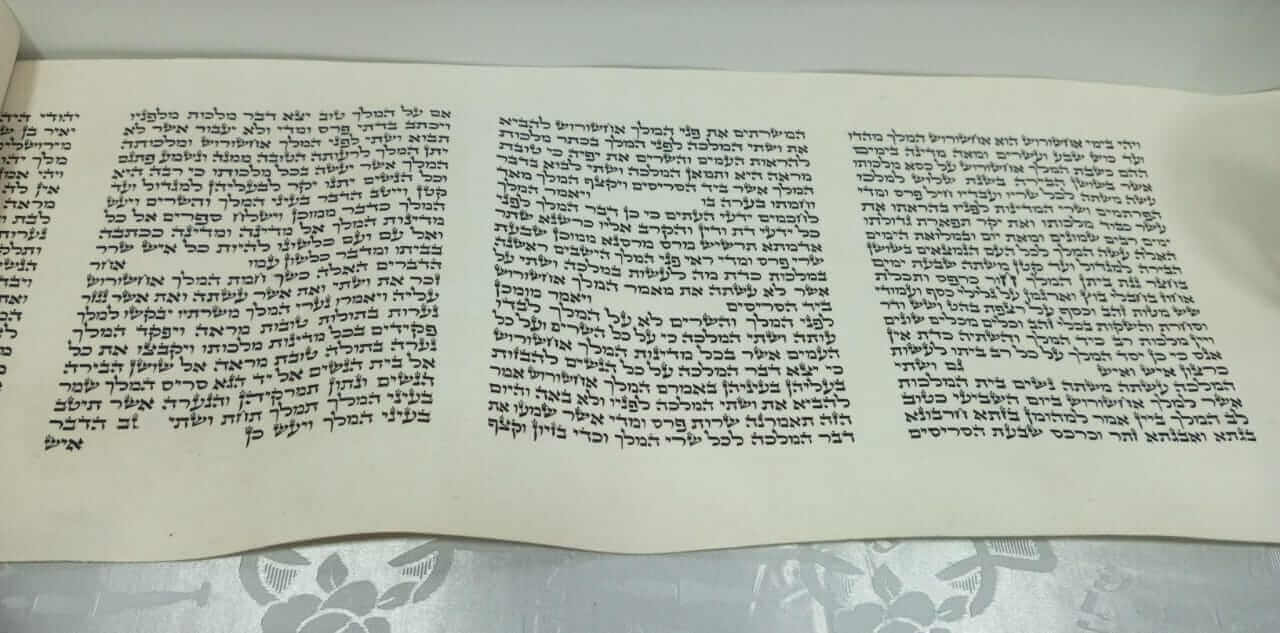 ויהי בימי אחשורוש הוא אחשורוש המלך מהדו
ועד כוש שבע ועשרים ומאה מדינה בימים
ההם כשבת המלך אחשורוש על כסא מלכותו
אשר בשושן הבירה בשנת שלוש למלכו
עשה משתה לכל שריו ועבדיו חיל פרס ומדי
הפרתמים ושרי המדינות לפניו בהראתו את
עשר כבוד מלכותו ואת יקר תפארת גדולתו
ימים רבים שמונים ומאת יום ובמלואת הימים
האלה עשה המלך לכל העם הנמצאים בשושן
הבירה למגדול ועד קטן משתה שבעת ימים
בחצר גנת ביתן המלך חור כרפס ותכלת
אחוז בחבלי בוץ וארגמן על גלילי כסף ועמודי
שש מטות זהב וכסף על רצפת בהט ושש ודר
וסחרת והשקות בכלי זהב וכלים מכלים שונים
ויין מלכות רב כיד המלך והשתיה כדת אין
אנס כי כן יסד המלך על כל רב ביתו לעשות
כרצון איש ואיש גם ושתי
המלכה עשתה משתה נשים בית המלכות
אשר למלך אחשורוש ביום השביעי כטוב
לב המלך ביין אמר למהומן בזתא חרבונא
בגתא ואבגתא זתר וכרכס שבעת הסריסים
המשרתים את פני המלך אחשורוש להביא
את ושתי המלכה לפני המלך בכתר מלכות
להראות העמים והשרים את יפיה כי טובת
מראה היא ותמאן המלכה ושתי לבוא בדבר
המלך אשר ביד הסריסים ויקצף המלך מאד
וחמתו בערה בו ויאמר המלך
לחכמים ידעי העתים כי כן דבר המלך לפני
כל ידעי דת ודין והקרב אליו כרשנא שתר
אדמתא תרשיש מרס מרסנא ממוכן שבעת
שרי פרס ומדי ראי פני המלך הישבים ראשנה
במלכות כדת מה לעשות במלכה ושתי על
אשר לא עשתה את מאמר המלך אחשורוש
ביד הסריסים ויאמר מומכן
לפני המלך והשרים לא על המלך לבדו
עותה ושתי המלכה כי על כל השרים ועל כל
העמים אשר בכל מדינות המלך אחשורוש
כי יצא דבר המלכה על כל הנשים להבזות
בעליהן בעיניהן באמרם המלך אחשורוש אמר
להביא את ושתי המלכה לפניו ולא באה והיום
הזה תאמרנה שרות פרס ומדי אשר שמעו את
דבר המלכה לכל שרי המלך וכדי בזיון וקצף
אם על המלך טוב יצא דבר מלכות מלפניו
ויכתב בדתי פרס ומדי ולא יעבור אשר לא
תבוא ושתי לפני המלך אחשורוש ומלכותה
יתן המלך לרעותה הטובה ממנה ונשמע פתגם
המלך אשר יעשה בכל מלכותו כי רבה היא
וכל הנשים יתנו יקר לבעליהן למגדול ועד
קטן וייטב הדבר בעיני המלך והשרים ויעש
המלך כדבר ממוכן וישלח ספרים אל כל
מדינות המלך אל מדינה ומדינה ככתבה
ואל עם ועם כלשונו להיות כל איש שרר
בביתו ומדבר כלשון עמו אחר
הדברים האלה כשך חמת המלך אחשורוש
זכר את ושתי ואת אשר עשתה ואת אשר נגזר
עליה ויאמרו נערי המלך משרתיו יבקשו למלך
נערות בתולות טובות מראה ויפקד המלך
פקידים בכל מדינות מלכותו ויקבצו את כל
נערה בתולה טובת מראה אל שושן הבירה
אל בית הנשים אל יד הגא סריס המלך שמר
הנשים ונתון תמרקיהן והנערה אשר תיטב
בעיני המלך תמלך תחת ושתי הדבר
בעיני המלך ויעש כן איש
יהודי
יאיר בן
מלך
ויהי
אין לה
מראה
לבת